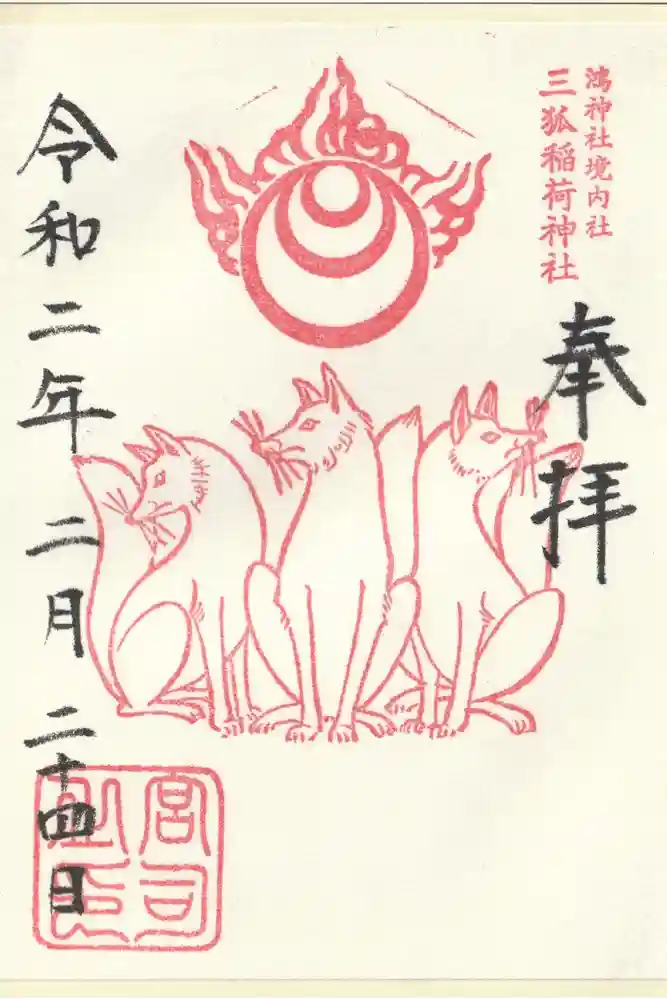 鴻神社境内社
三狐稲荷神社
奉拝
令和二年二月二十四日
宮司